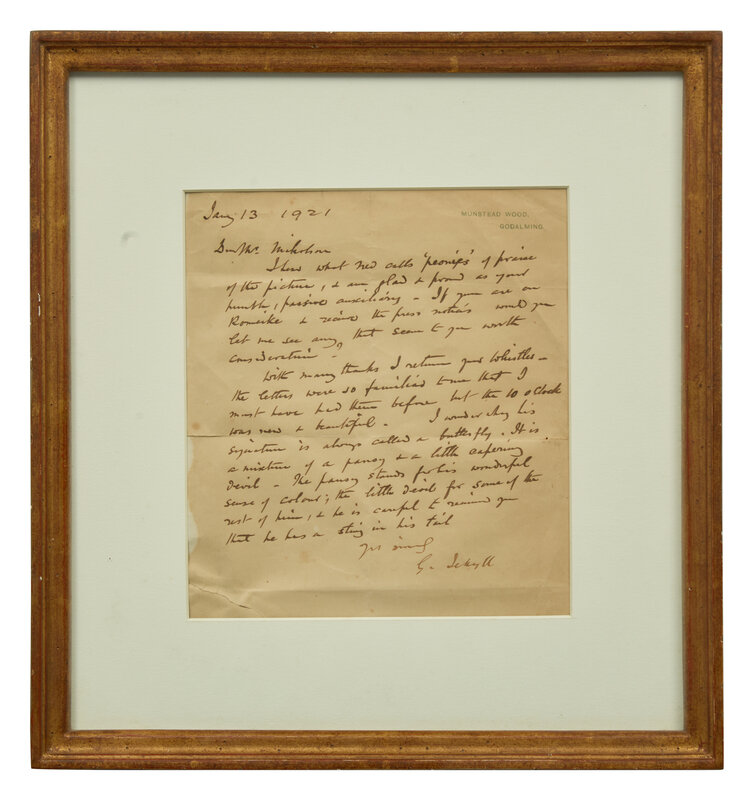 Jany 13 1921
MUNSTEAD WOOD,
GODALMING.
Dear Mr. Nicholson
I hear what Ned calls "peonies" of praise
of the picture, & am glad & proud as your
humble, passive auxiliary - If you are on
Romeike & receive the press notices would you
let me see any that seem to you worth
consideration -
With many thanks I return your Whistler -
the letters were so familiar to me that I
must have had them before but the 10 o'Clock
was new & beautiful - I wonder why his
signature is always called a butterfly. It is
a mixture of a pansy & a little capering
devil - The pansy stands for his wonderful
sense of colour; the little devil for some of the
rest of him, & he is careful to remind you
that he has a sting in his tail
G. Jekyll